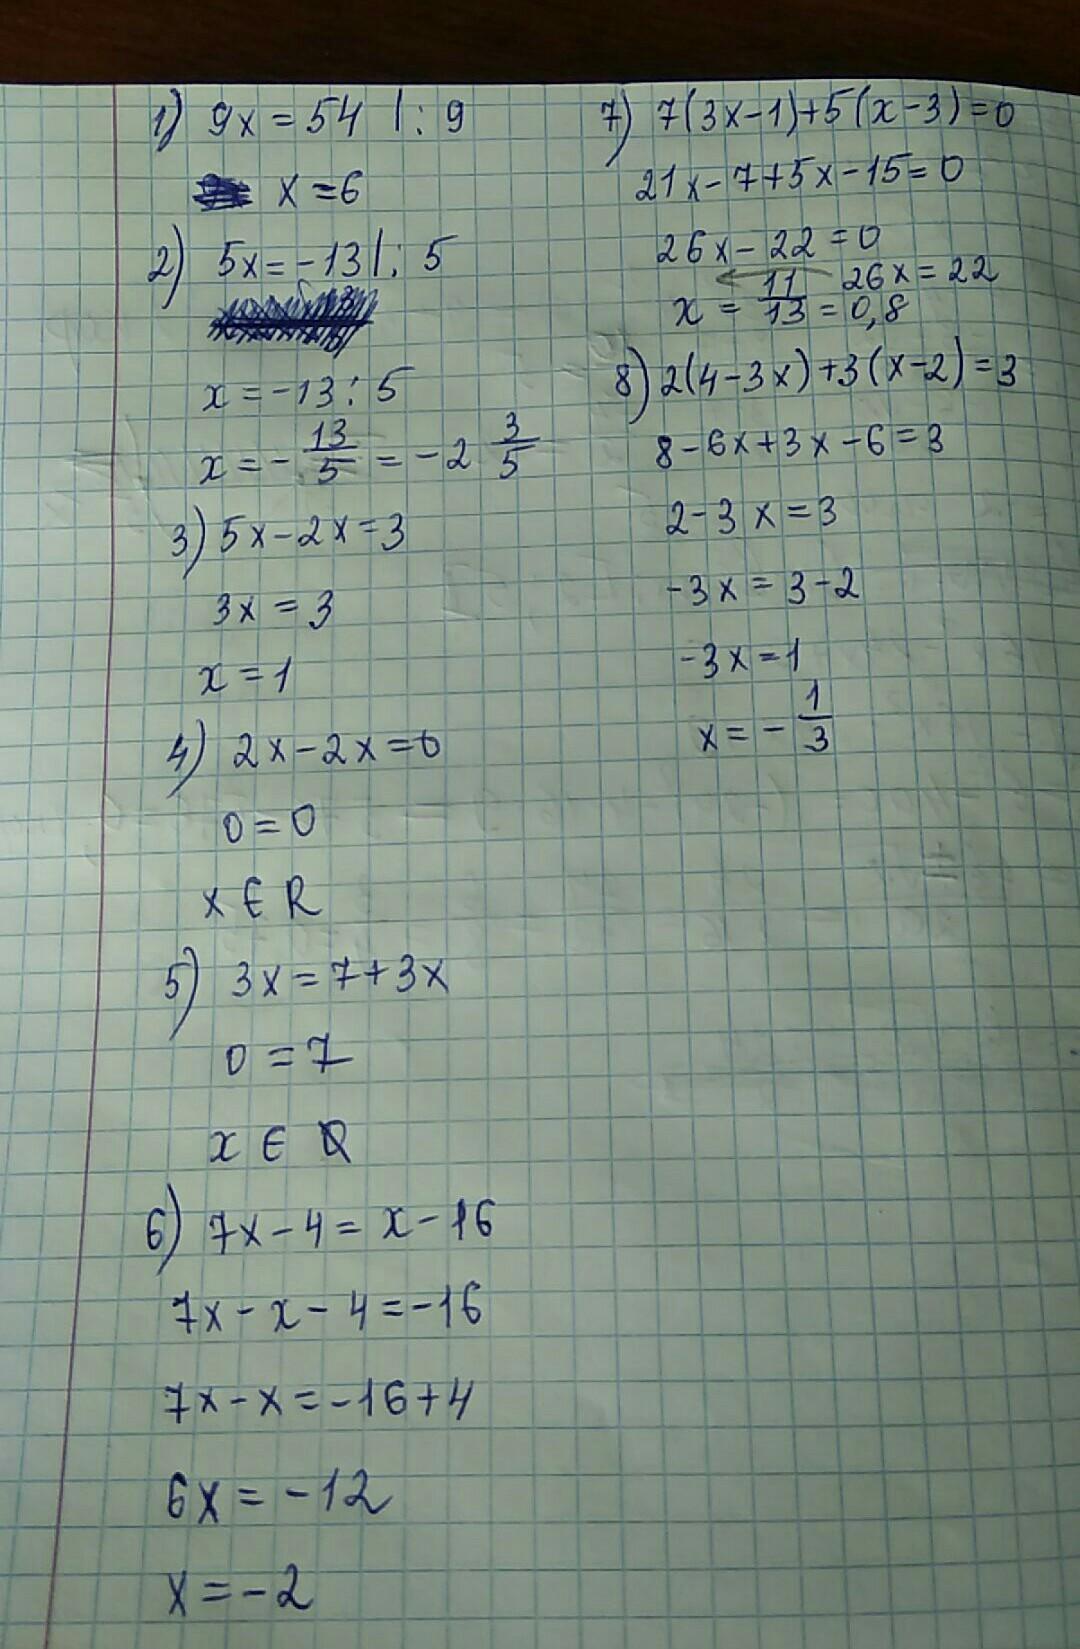 1) 9x = 54 | : 9
x = 6
2) 5x = -13 | : 5
x = -13 : 5
x = - 13/5 = -2 3/5
3) 5x - 2x = 3
3x = 3
x = 1
4) 2x - 2x = 0
0 = 0
x ∈ R
5) 3x = 7 + 3x
0 = 7
x ∈
6) 7x - 4 = x - 16
7x - x - 4 = -16
7x - x = -16 + 4
6x = -12
x = -2
7) 7(3x - 1) + 5(x - 3) = 0
21x - 7 + 5x - 15 = 0
26x - 22 = 0
26x = 22
x = 11/13 = 0,8
8) 2(4 - 3x) + 3(x - 2) = 3
8 - 6x + 3x - 6 = 3
2 - 3x = 3
-3x = 3 - 2
-3x = 1
x = - 1/3